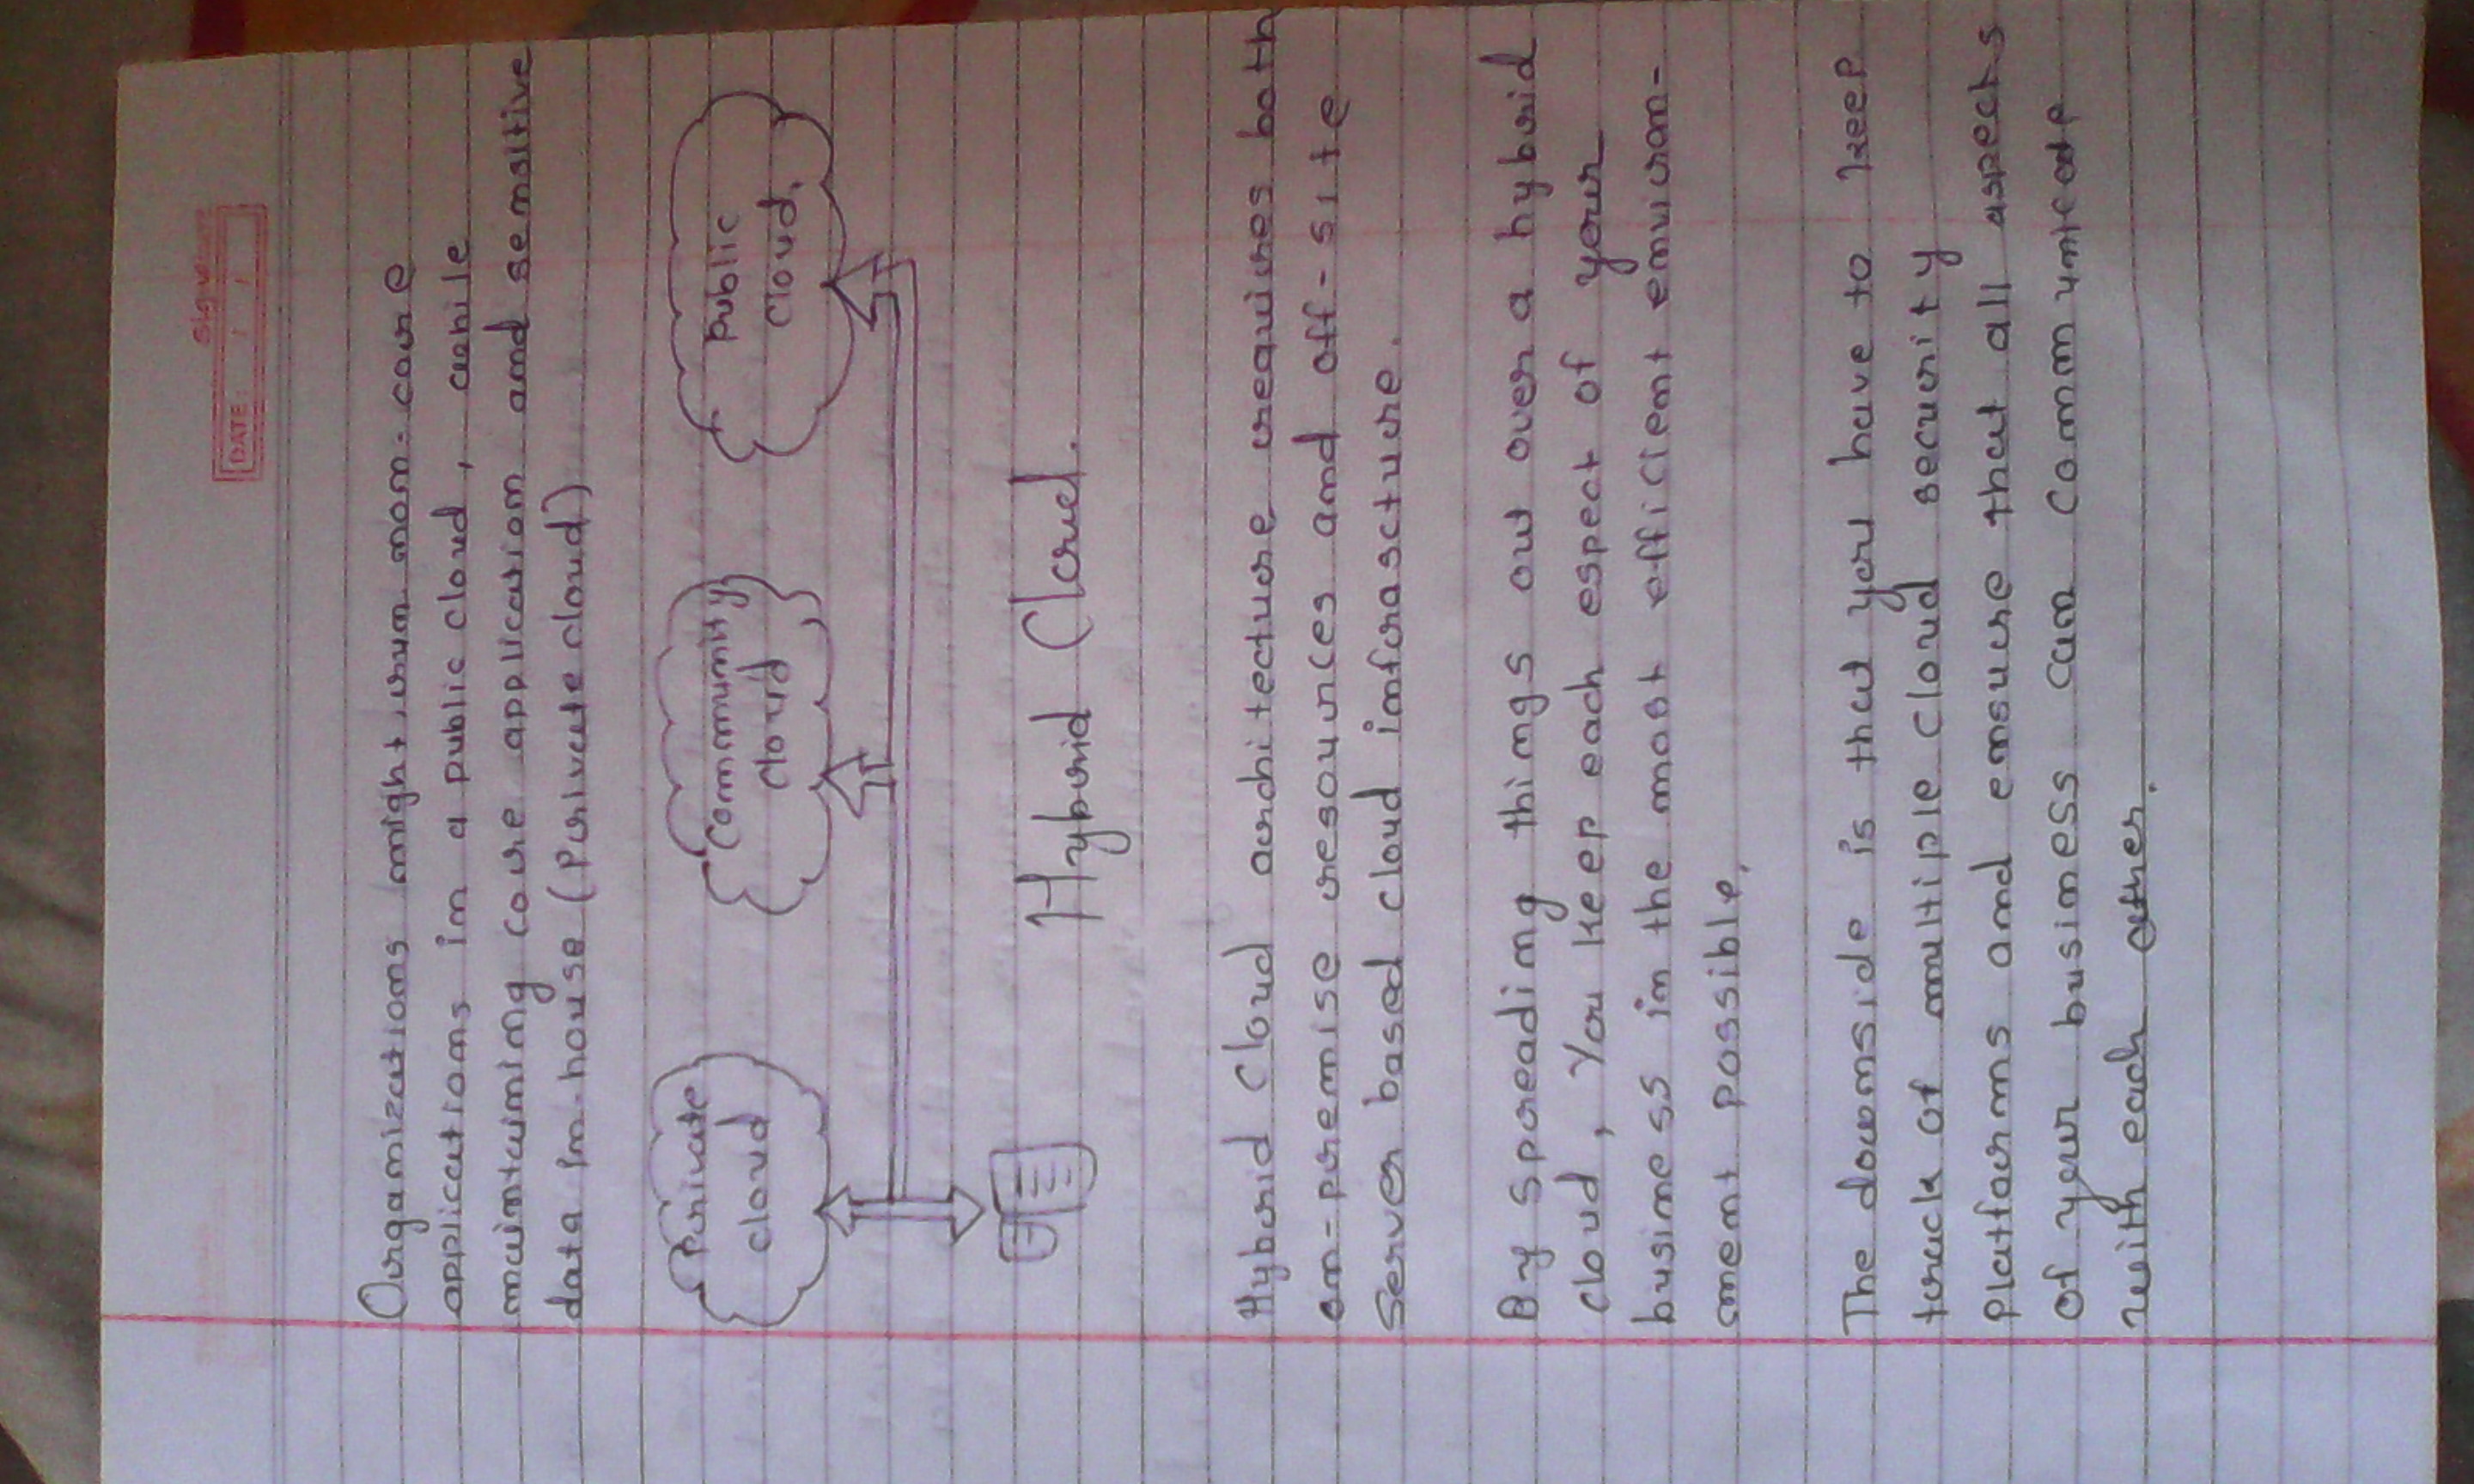 Signature
DATE: / /
Organizations might run non-core
applications in a public cloud, while
maintaining core application and sensitive
data in-house (Private cloud)
Private
cloud
Community
cloud
Public
Cloud.
Hybrid Cloud.
Hybrid Cloud architecture requires both
on-premise resources and off-site
Server based cloud infrascture.
By spreading things out over a hybrid
cloud, You keep each espect of your
business in the most efficient environ-
ment possible.
The downside is that you have to keep
track of multiple cloud security
platforms and ensure that all aspects
of your business can communicate
with each other.